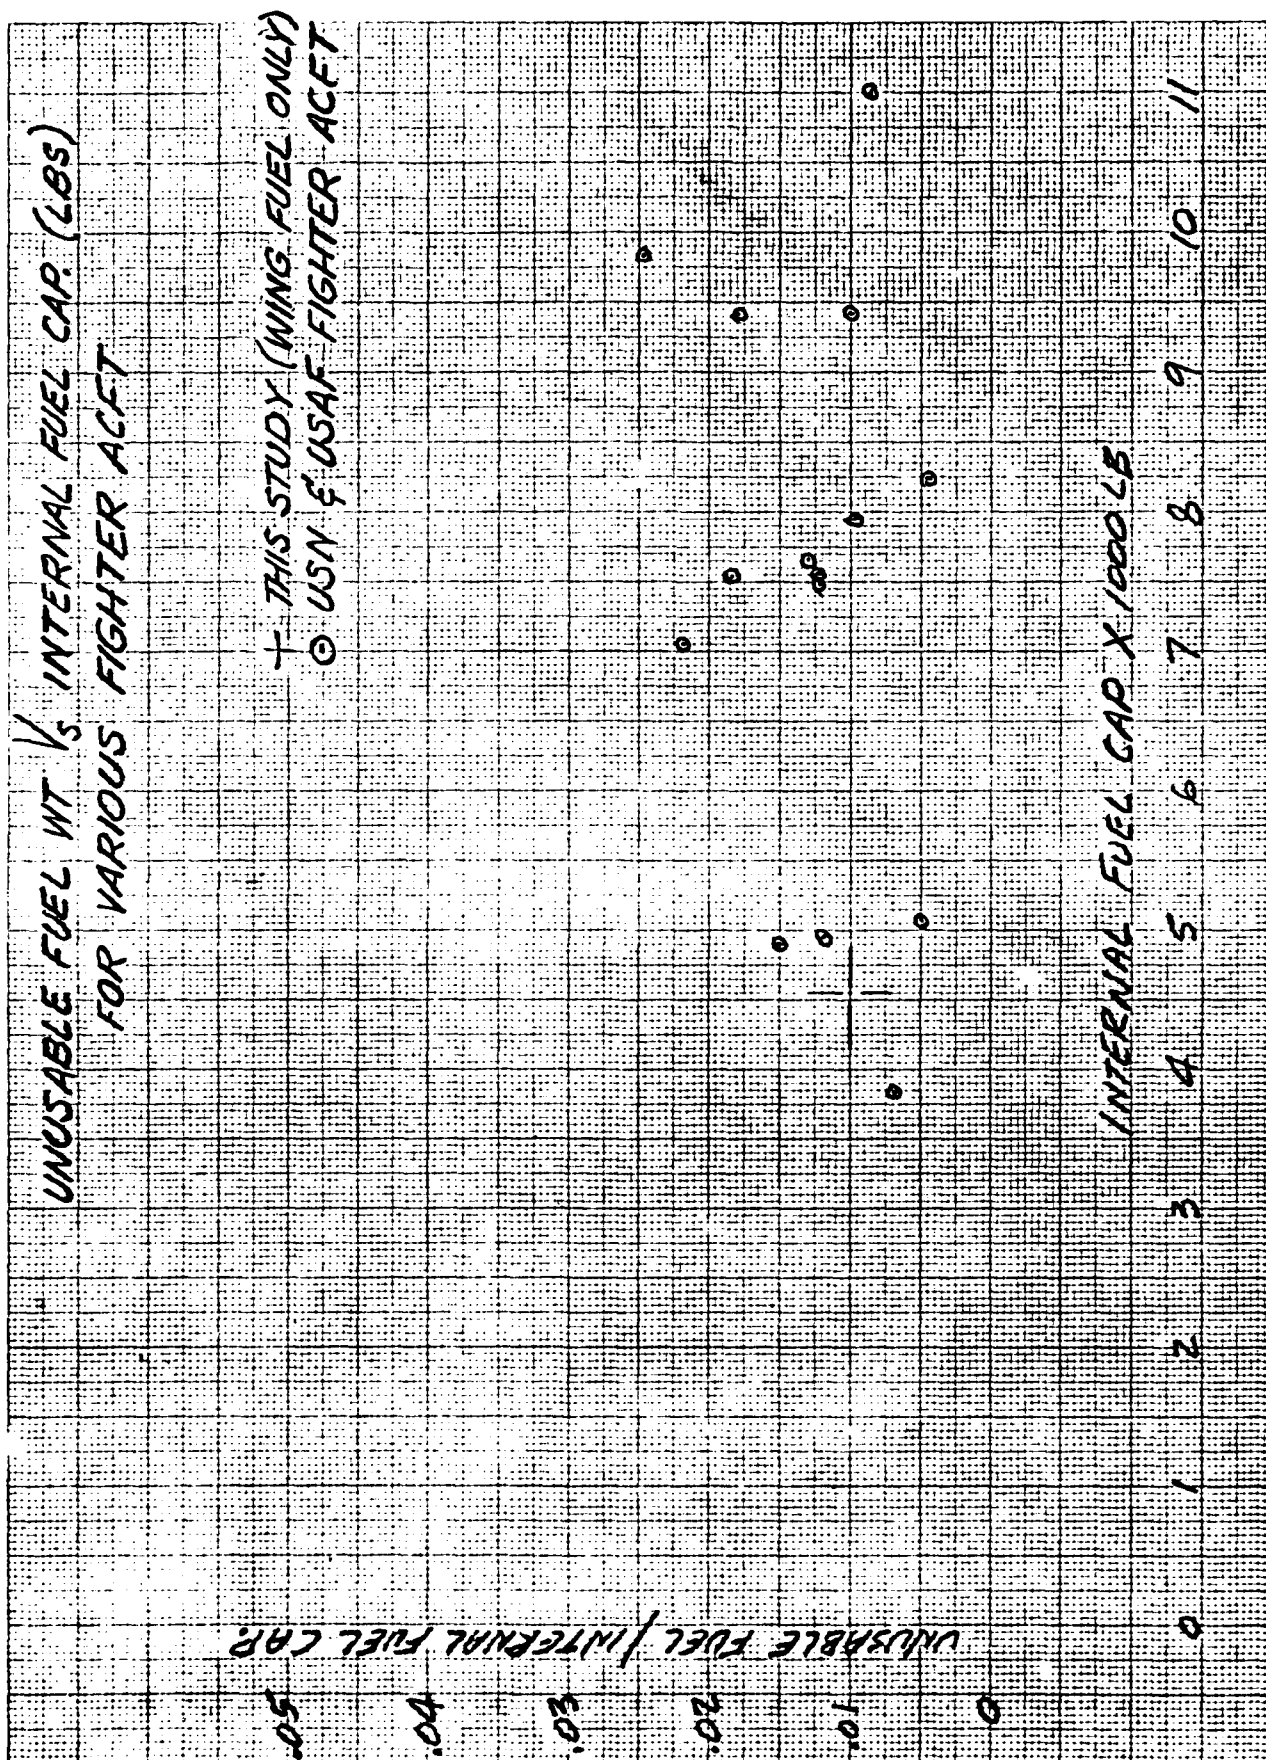 UNUSABLE FUEL WT VS INTERNAL FUEL CAP. (LBS)
FOR VARIOUS FIGHTER ACFT
+ THIS STUDY (WING FUEL ONLY)
⊙ USN & USAF FIGHTER ACFT
UNUSABLE FUEL / INTERNAL FUEL CAP.
.05
.04
.03
.02
.01
0
INTERNAL FUEL CAP X 1000 LB
0 1 2 3 4 5 6 7 8 9 10 11